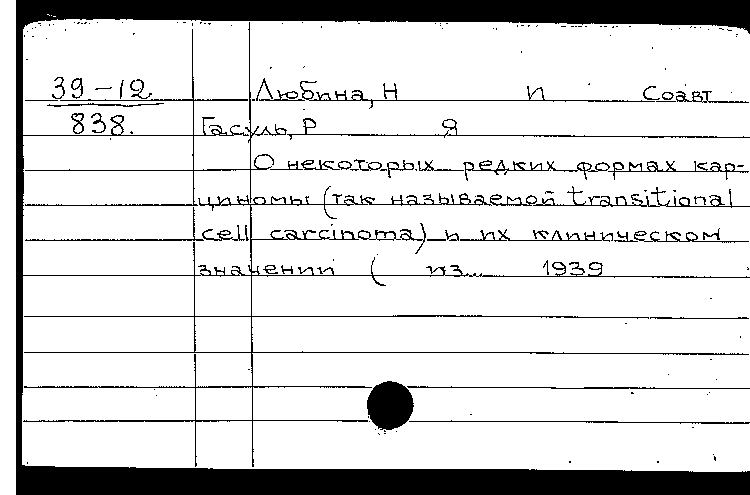 39.-12.
838.
Любина, Н И Соавт
Гасуль, Р Я
О некоторых редких формах кар-
циномы (так называемой transitional
cell carcinoma) и их клиническом
значении ( из... 1939